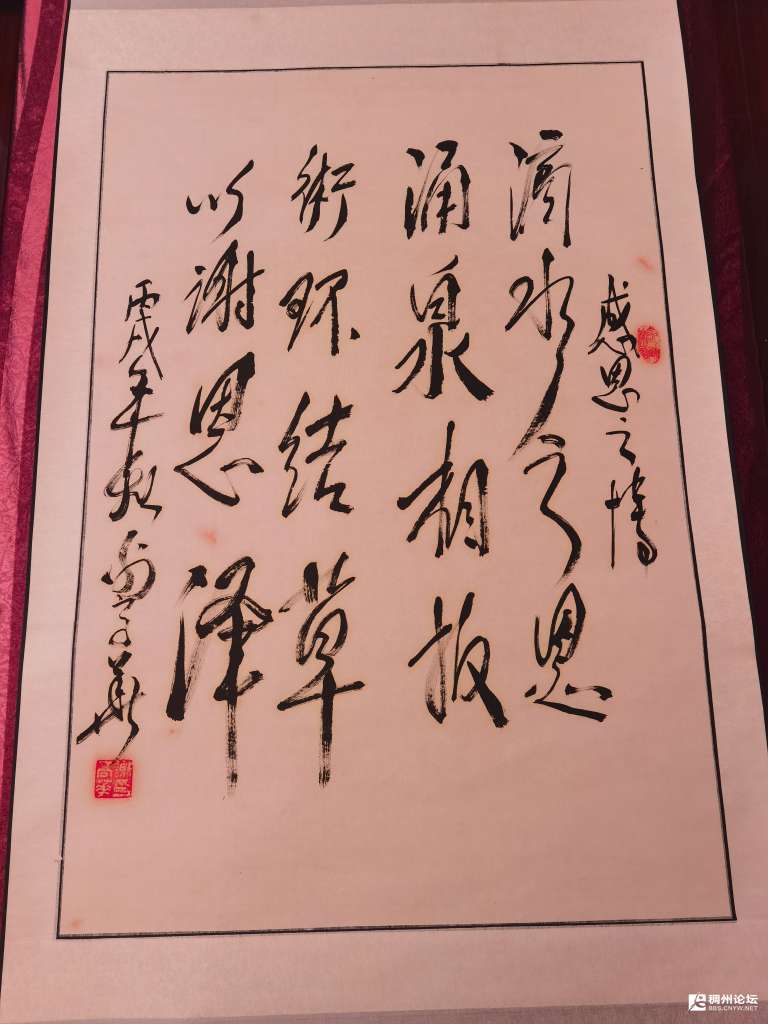 感恩之情
滴水之恩
涌泉相报
衔环结草
以谢恩泽
丙戌年
稠州论坛
BBS.CNYW.NET